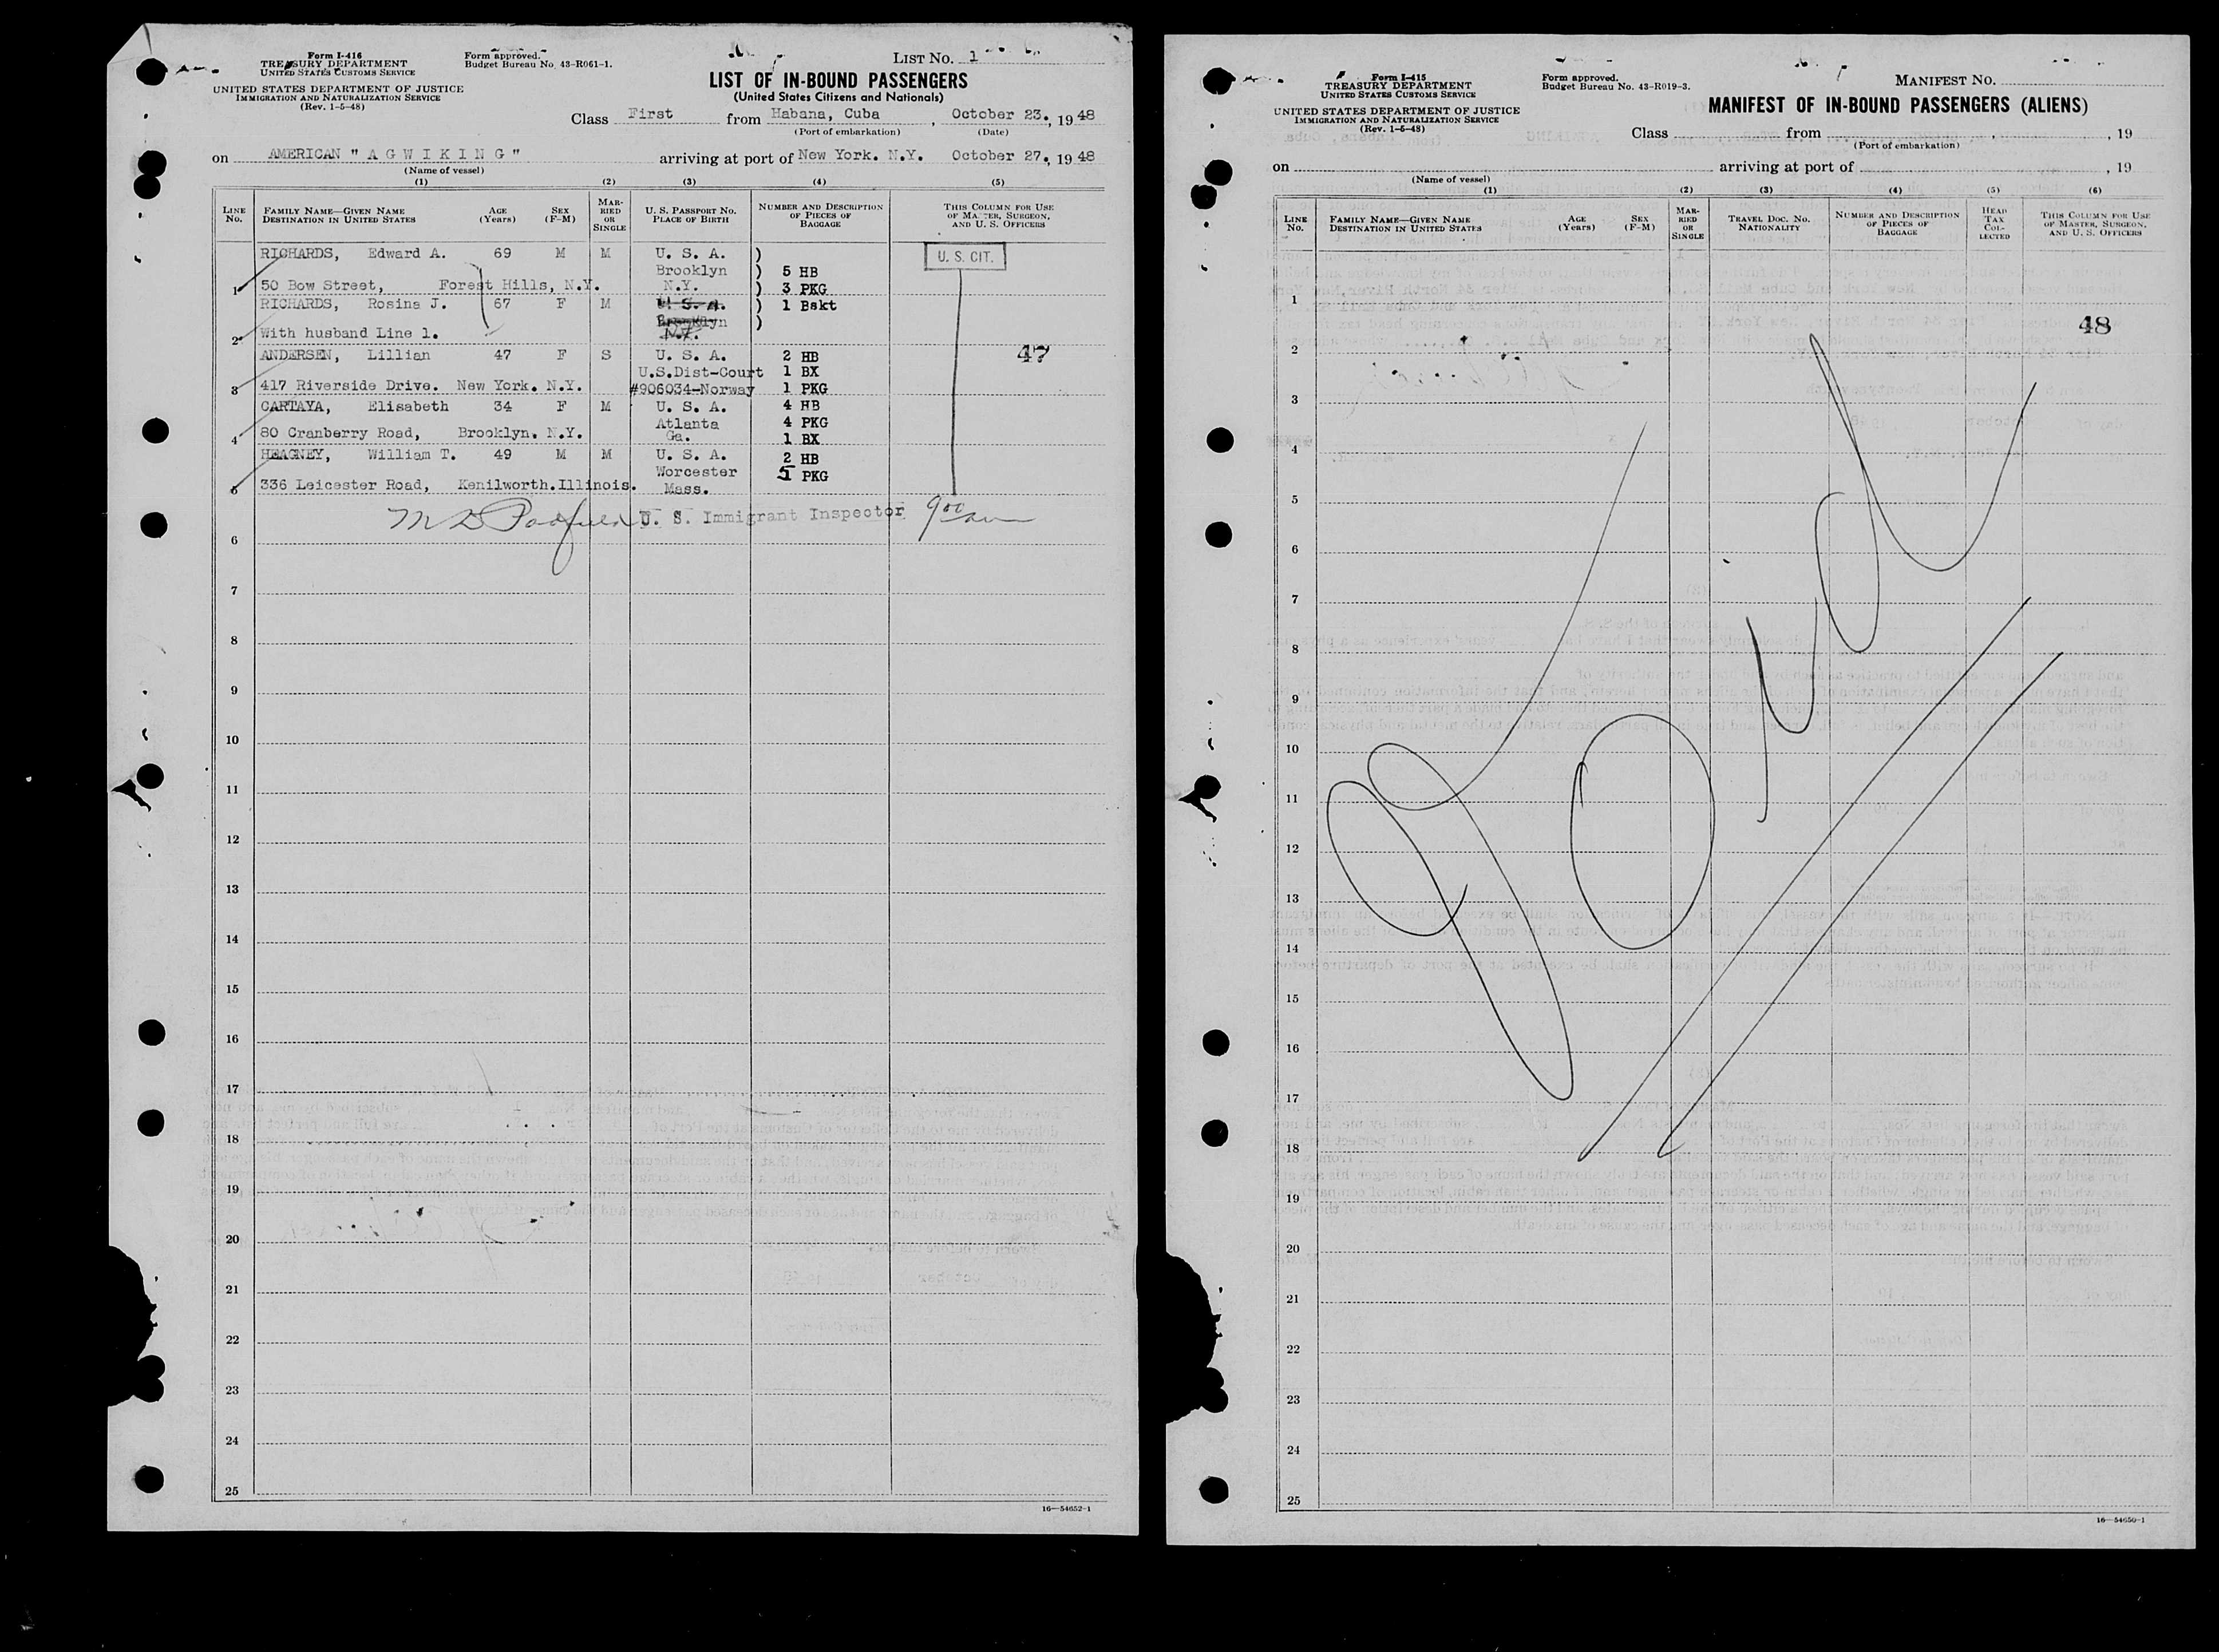 Form I-416
TREASURY DEPARTMENT
UNITED STATES CUSTOMS SERVICE
UNITED STATES DEPARTMENT OF JUSTICE
IMMIGRATION AND NATURALIZATION SERVICE
(Rev. 1-5-48)
Form approved.
Budget Bureau No. 43-R061-1.
LIST NO. 1
LIST OF IN-BOUND PASSENGERS
(United States Citizens and Nationals)
Class First from Habana, Cuba, October 23., 1948
(Port of embarkation) (Date)
on AMERICAN "AGWIKING" arriving at port of New York. N.Y. October 27., 1948
(Name of vessel)
(1) (2) (3) (4) (5)
LINE NO.
FAMILY NAME—GIVEN NAME
DESTINATION IN UNITED STATES
AGE (Years)
SEX (F-M)
MARRIED OR SINGLE
U. S. PASSPORT NO.
PLACE OF BIRTH
NUMBER AND DESCRIPTION OF PIECES OF BAGGAGE
THIS COLUMN FOR USE OF MASTER, SURGEON, AND U. S. OFFICERS
RICHARDS, Edward A. 69 M M U. S. A. ) U. S. CIT.
Brooklyn ) 5 HB
1 50 Bow Street, Forest Hills, N.Y. N.Y. ) 3 PKG
RICHARDS, Rosina J. 67 F M U. S. A. ) 1 Bskt
Brooklyn )
2 With husband Line 1. N.Y.
ANDERSEN, Lillian 47 F S U. S. A. 2 HB 47
U.S.Dist-Court 1 BX
3 417 Riverside Drive. New York. N.Y. #906034-Norway 1 PKG
CARTAYA, Elisabeth 34 F M U. S. A. 4 HB
Atlanta 4 PKG
4 80 Cranberry Road, Brooklyn. N.Y. Ga. 1 BX
HEAGNEY, William T. 49 M M U. S. A. 2 HB
Worcester 5 PKG
5 336 Leicester Road, Kenilworth.Illinois. Mass.
U. S. Immigrant Inspector 9 00 am
6
7
8
9
10
11
12
13
14
15
16
17
18
19
20
21
22
23
24
25
16—54652-1
Form I-415
TREASURY DEPARTMENT
UNITED STATES CUSTOMS SERVICE
UNITED STATES DEPARTMENT OF JUSTICE
IMMIGRATION AND NATURALIZATION SERVICE
(Rev. 1-5-48)
Form approved.
Budget Bureau No. 43-R019-3.
MANIFEST NO.
MANIFEST OF IN-BOUND PASSENGERS (ALIENS)
Class from , , 19
(Port of embarkation)
on arriving at port of , 19
(Name of vessel)
(1) (2) (3) (4) (5) (6)
LINE NO.
FAMILY NAME—GIVEN NAME
DESTINATION IN UNITED STATES
AGE (Years)
SEX (F-M)
MARRIED OR SINGLE
TRAVEL DOC. NO.
NATIONALITY
NUMBER AND DESCRIPTION OF PIECES OF BAGGAGE
HEAD TAX COLLECTED
THIS COLUMN FOR USE OF MASTER, SURGEON, AND U. S. OFFICERS
1
48
2
3
4
5
6
7
8
9
10
11
12
13
14
15
16
17
18
19
20
21
22
23
24
25
16—54650-1